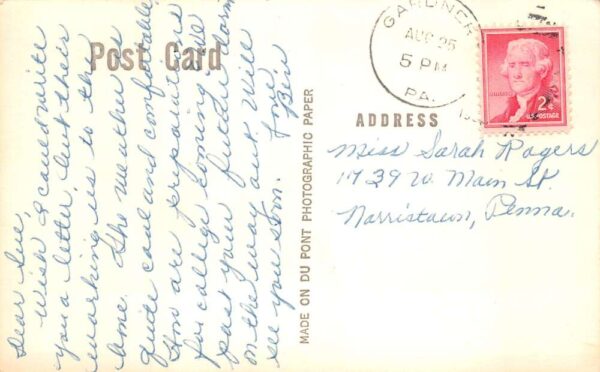 Post Card
GARDNER
AUG 25
5 PM
PA.
2¢
U.S. POSTAGE
ADDRESS
Miss Sarah Rogers
1739 W. Main St.
Norristown, Penna.
MADE ON DU PONT PHOTOGRAPHIC PAPER
Dear Sue,
Wish I could write
you a letter, but their
working us to the
bone. The weather is
quite cool and comfortable
How are preparations
for college coming? I'll
past your future dorm
on the way out. Will
see you soon.
Love
Bev